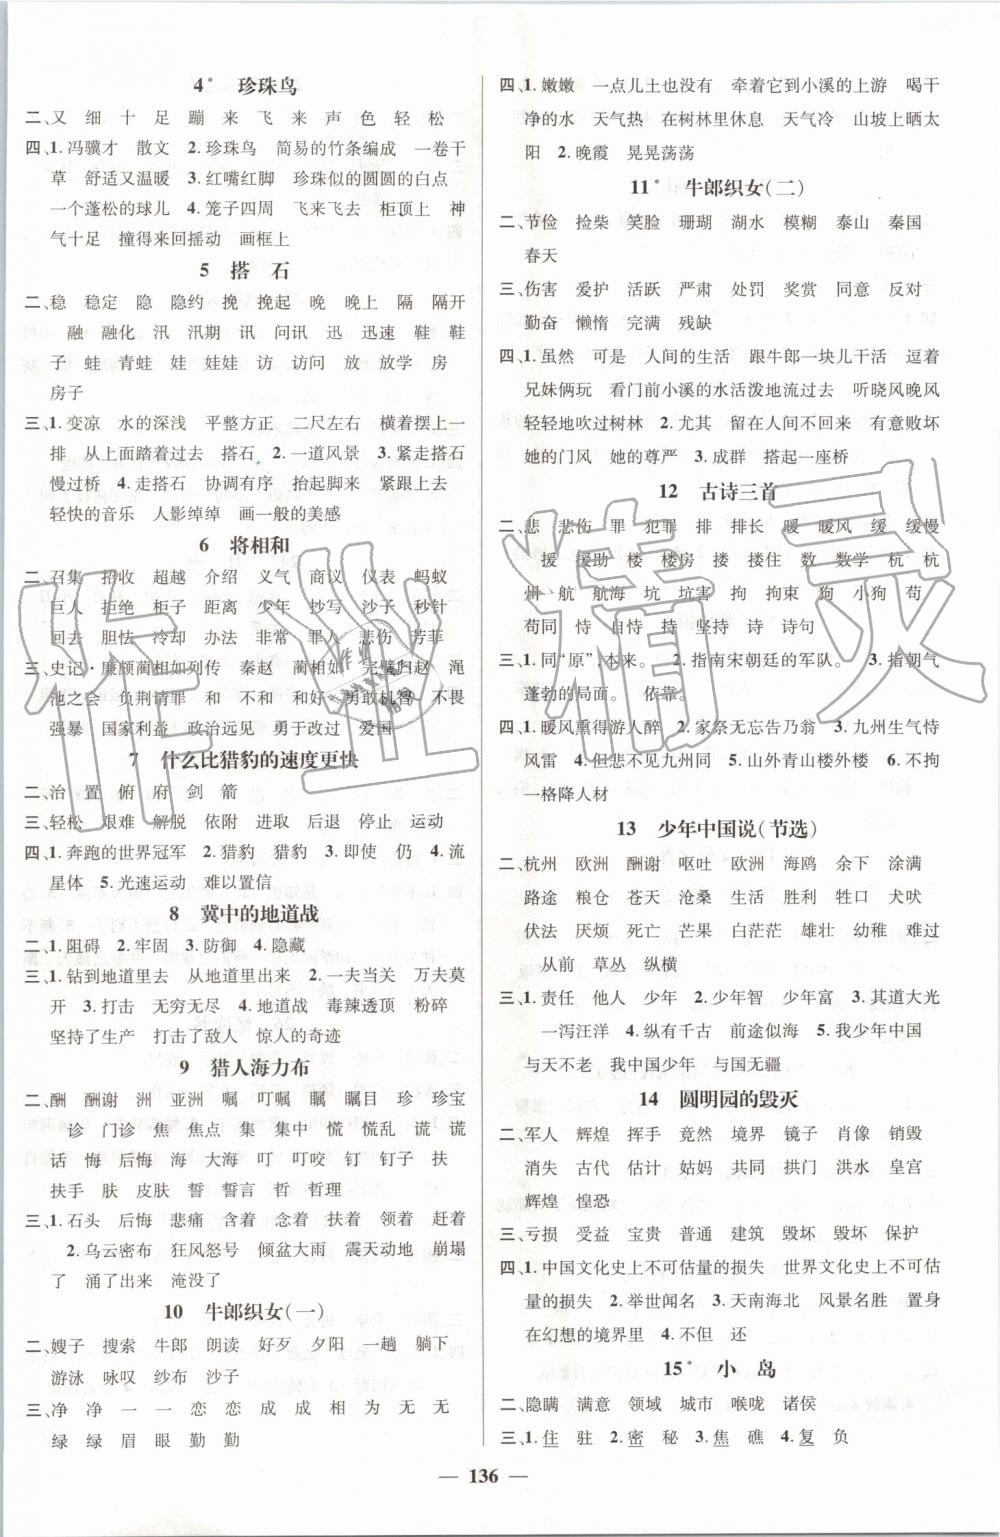 4* 珍珠鸟
二、又 细 十 足 蹦 来 飞 来 声 色 轻 松
四、1.冯骥才 散文 2.珍珠鸟 简易的竹条编成 一卷干
草 舒适又温暖 3.红嘴红脚 珍珠似的圆圆的白点
一个蓬松的球儿 4.笼子四周 飞来飞去 柜顶上 神
气十足 撞得来回摇动 画框上
5 搭 石
二、稳 稳定 隐 隐约 挽 挽起 晚 晚上 隔 隔开
融 融化 汛 汛期 讯 问讯 迅 迅速 鞋 鞋
子 蛙 青蛙 娃 娃娃 访 访问 放 放学 房
房子
三、1.变凉 水的深浅 平整方正 二尺左右 横着摆上一
排 从上面踏着过去 搭石 2.一道风景 3.紧走搭石
慢过桥 4.走搭石 协调有序 抬起脚来 紧跟上去
轻快的音乐 人影绰绰 画一般的美感
6 将相和
二、召集 招收 超越 介绍 义气 商议 仪表 蚂蚁
巨人 拒绝 柜子 距离 少年 抄写 沙子 秒针
回去 胆怯 冷却 办法 非常 罪人 悲伤 芳菲
三、史记·廉颇蔺相如列传 秦赵 蔺相如 完璧归赵 渑
池之会 负荆请罪 和 不和 和好 勇敢机智 不畏
强暴 国家利益 政治远见 勇于改过 爱国
7 什么比猎豹的速度更快
二、治 置 俯 府 剑 箭
三、轻松 艰难 解脱 依附 进取 后退 停止 运动
四、1.奔跑的世界冠军 2.猎豹 猎豹 3.即使 仍 4.流
星体 5.光速运动 难以置信
8 冀中的地道战
二、1.阻碍 2.牢固 3.防御 4.隐藏
三、1.钻到地道里去 从地道里出来 2.一夫当关 万夫莫
开 3.打击 无穷无尽 4.地道战 毒辣透顶 粉碎
坚持了生产 打击了敌人 惊人的奇迹
9 猎人海力布
二、酬 酬谢 洲 亚洲 嘱 叮嘱 瞩 瞩目 珍 珍宝
诊 门诊 焦 焦点 集 集中 慌 慌乱 谎 谎
话 悔 后悔 海 大海 叮 叮咬 钉 钉子 扶
扶手 肤 皮肤 誓 誓言 哲 哲理
三、1.石头 后悔 悲痛 含着 念着 扶着 领着 赶着
2.乌云密布 狂风怒号 倾盆大雨 震天动地 崩塌
了 涌了出来 淹没了
10 牛郎织女(一)
二、嫂子 搜索 牛郎 朗读 好歹 夕阳 一趟 躺下
游泳 咏叹 纱布 沙子
三、净 净 一 一 恋 恋 成 成 相 为 无 无
绿 绿 眉 眼 勤 勤
四、1.嫩嫩 一点儿土也没有 牵着它到小溪的上游 喝干
净的水 天气热 在树林里休息 天气冷 山坡上晒太
阳 2.晚霞 晃晃荡荡
11* 牛郎织女(二)
二、节俭 捡柴 笑脸 珊瑚 湖水 模糊 泰山 秦国
春天
三、伤害 爱护 活跃 严肃 处罚 奖赏 同意 反对
勤奋 懒惰 完满 残缺
四、1.虽然 可是 人间的生活 跟牛郎一块儿干活 逗着
兄妹俩玩 看门前小溪的水活泼地流过去 听晓风晚风
轻轻地吹过树林 2.尤其 留在人间不回来 有意败坏
她的门风 她的尊严 3.成群 搭起一座桥
12 古诗三首
二、悲 悲伤 罪 犯罪 排 排长 暖 暖风 缓 缓慢
援 援助 楼 楼房 搂 搂住 数 数学 杭 杭
州 航 航海 坑 坑害 拘 拘束 狗 小狗 苟
苟同 恃 自恃 持 坚持 诗 诗句
三、1.同“原”,本来。 2.指南宋朝廷的军队。 3.指朝气
蓬勃的局面。 依靠。
四、1.暖风熏得游人醉 2.家祭无忘告乃翁 3.九州生气恃
风雷 4.但悲不见九州同 5.山外青山楼外楼 6.不拘
一格降人材
13 少年中国说(节选)
二、杭州 欧洲 酬谢 呕吐 欧洲 海鸥 余下 涂满
路途 粮仓 苍天 沧桑 生活 胜利 牲口 犬吠
伏法 厌烦 死亡 芒果 白茫茫 雄壮 幼稚 难过
从前 草丛 纵横
三、1.责任 他人 少年 2.少年智 少年富 3.其道大光
一泻汪洋 4.纵有千古 前途似海 5.我少年中国
与天不老 我中国少年 与国无疆
14 圆明园的毁灭
二、军人 辉煌 挥手 竟然 境界 镜子 肖像 销毁
消失 古代 估计 姑妈 共同 拱门 洪水 皇宫
辉煌 惶恐
三、亏损 受益 宝贵 普通 建筑 毁坏 毁坏 保护
四、1.中国文化史上不可估量的损失 世界文化史上不可估
量的损失 2.举世闻名 3.天南海北 风景名胜 置身
在幻想的境界里 4.不但 还
15* 小 岛
二、隐瞒 满意 领域 城市 喉咙 诸侯
三、1.住 驻 2.密 秘 3.焦 礁 4.复 负
— 136 —
作业精灵